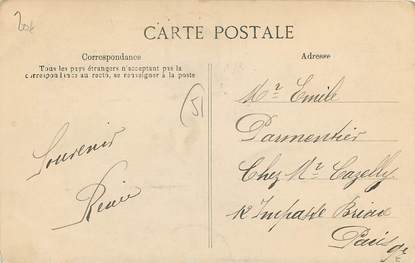 CARTE POSTALE
Correspondance
Tous les pays étrangers n'acceptant pas la
correspondance au recto, se renseigner à la poste
Souvenir
Adresse
Mr Emile
Parmentier
Chez Mr Cazelly
12 Impasse Briare
Paris 9e
(51)